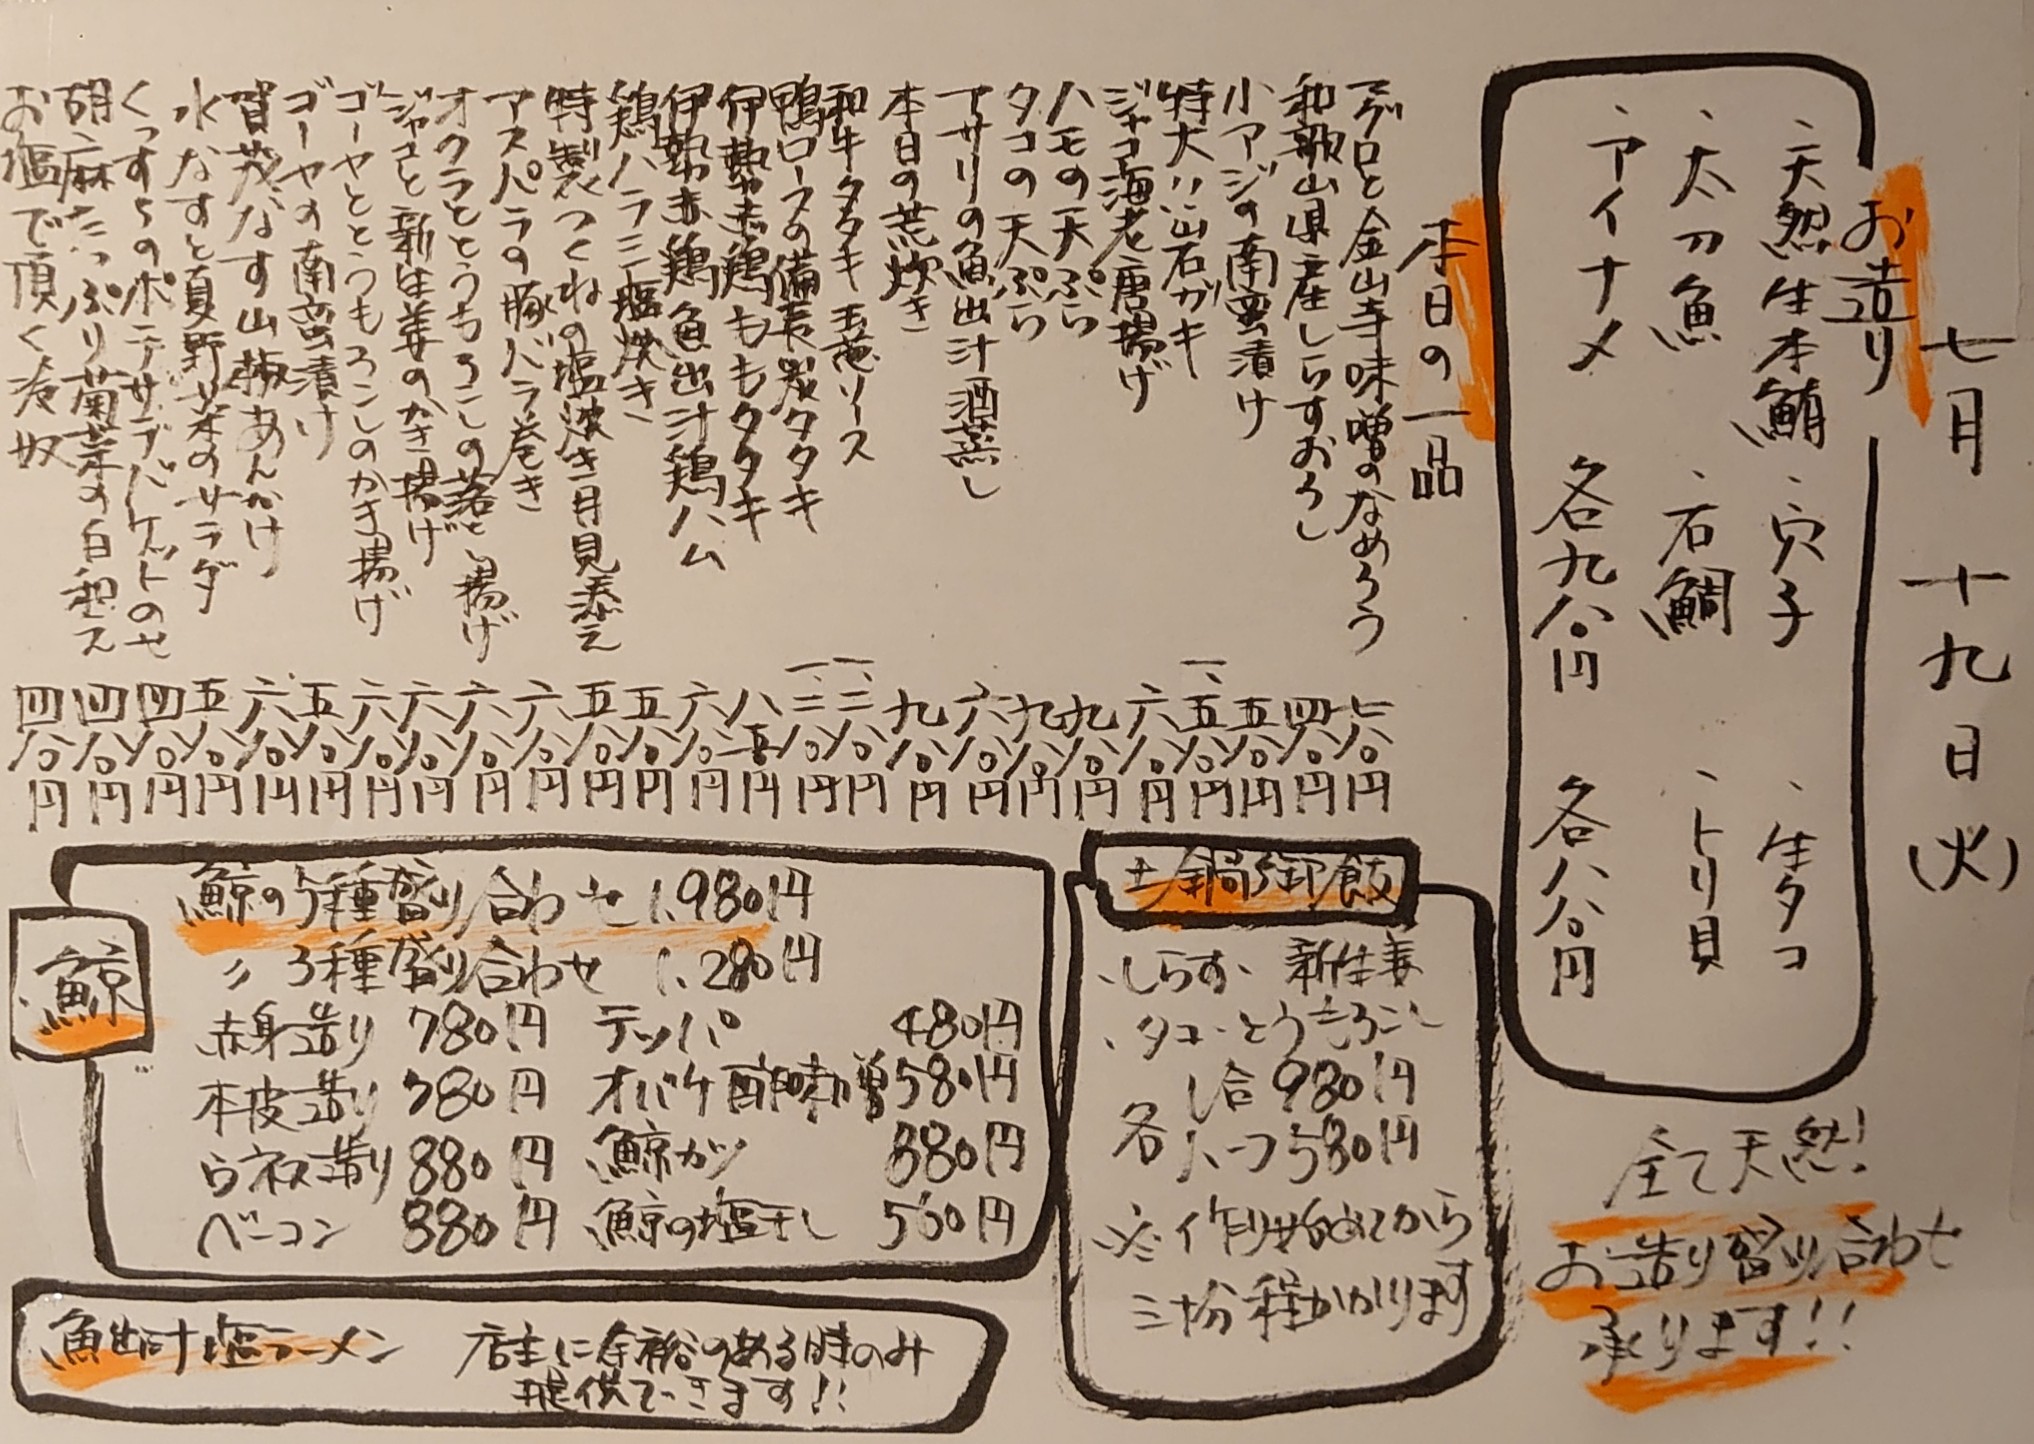 七月十九日(火)
お造り
、天然生本鮪 、穴子 、生タコ
、太刀魚 、石鯛 、トリ貝
、アイナメ 各九八〇円 各八八〇円
全て天然!
お造り盛り合わせ
承ります!!
本日の一品
マグロと金山寺味噌のなめろう 七八〇円
和歌山県産しらすおろし 四八〇円
小アジの南蛮漬け 五八〇円
特大!!岩ガキ 一、五八〇円
ジャコ海老唐揚げ 六八〇円
ハモの天ぷら 九八〇円
タコの天ぷら 九八〇円
アサリの魚出汁酒蒸し 六八〇円
本日の荒炊き 九八〇円
和牛タタキ 玉葱ソース 一、二八〇円
鴨ロースの備長炭タタキ 一、二八〇円
伊勢赤鶏ももタタキ 八五〇円
伊勢赤鶏魚出汁鶏ハム 六八〇円
鶏ハラミ塩焼き 五八〇円
特製つくねの塩焼き月見添え 五八〇円
アスパラの豚バラ巻き 六八〇円
オクラととうもろこしの落とし揚げ 六八〇円
ジャコと新生姜のかき揚げ 六八〇円
ゴーヤととうもろこしのかき揚げ 六八〇円
ゴーヤの南蛮漬け 五八〇円
賀茂なす山椒あんかけ 六八〇円
水なすと夏野菜のサラダ 五八〇円
くっすちのポテサラバケットのせ 四八〇円
胡麻たっぷり菊菜の白和え 四八〇円
お塩で頂く冷奴 四八〇円
土鍋御飯
、しらす、新生姜
、タコ、とうもろこし
各 一合 980円
ハーフ 580円
※作り始めてから
三十分程かかります
鯨
鯨の5種盛り合わせ 1,980円
〃 3種盛り合わせ 1,280円
赤身造り 780円 テッパ 480円
本皮造り 780円 オバケ酢味噌 580円
ウネス造り 880円 鯨カツ 880円
ベーコン 880円 鯨の塩干し 580円
魚出汁塩ラーメン 店主に余裕のある時のみ
提供できます!!